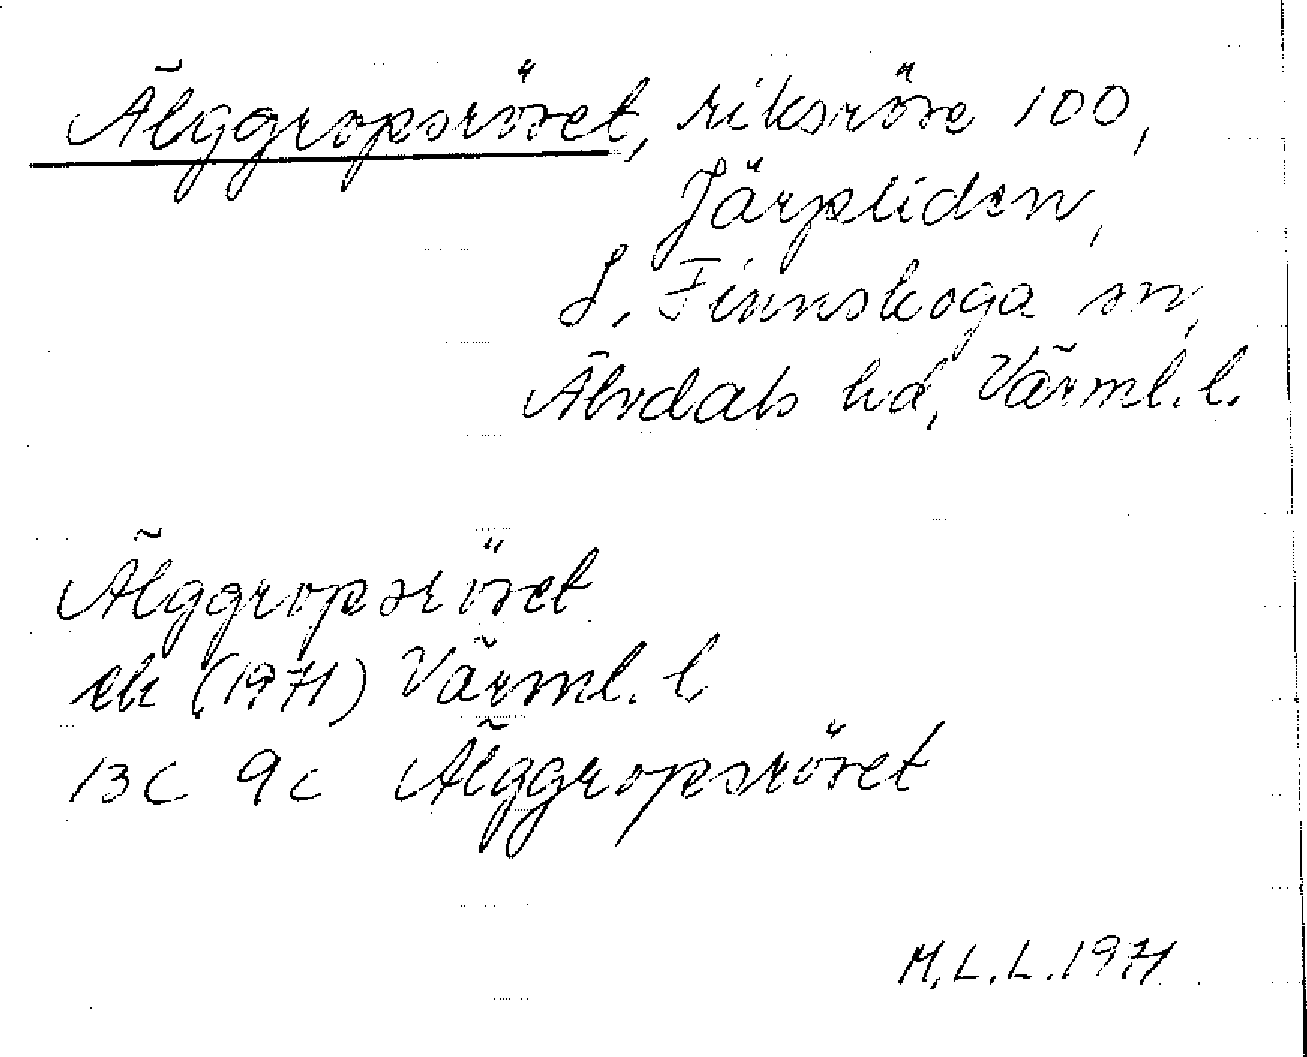 Älggropsröset, riksröse 100,
Järpliden,
S. Finnskoga sn,
Älvdals hd, Värml. l.
Älggropsröset
ek (1971) Värml. l.
13C 9c Älggropsröset
M.L.L. 1971.